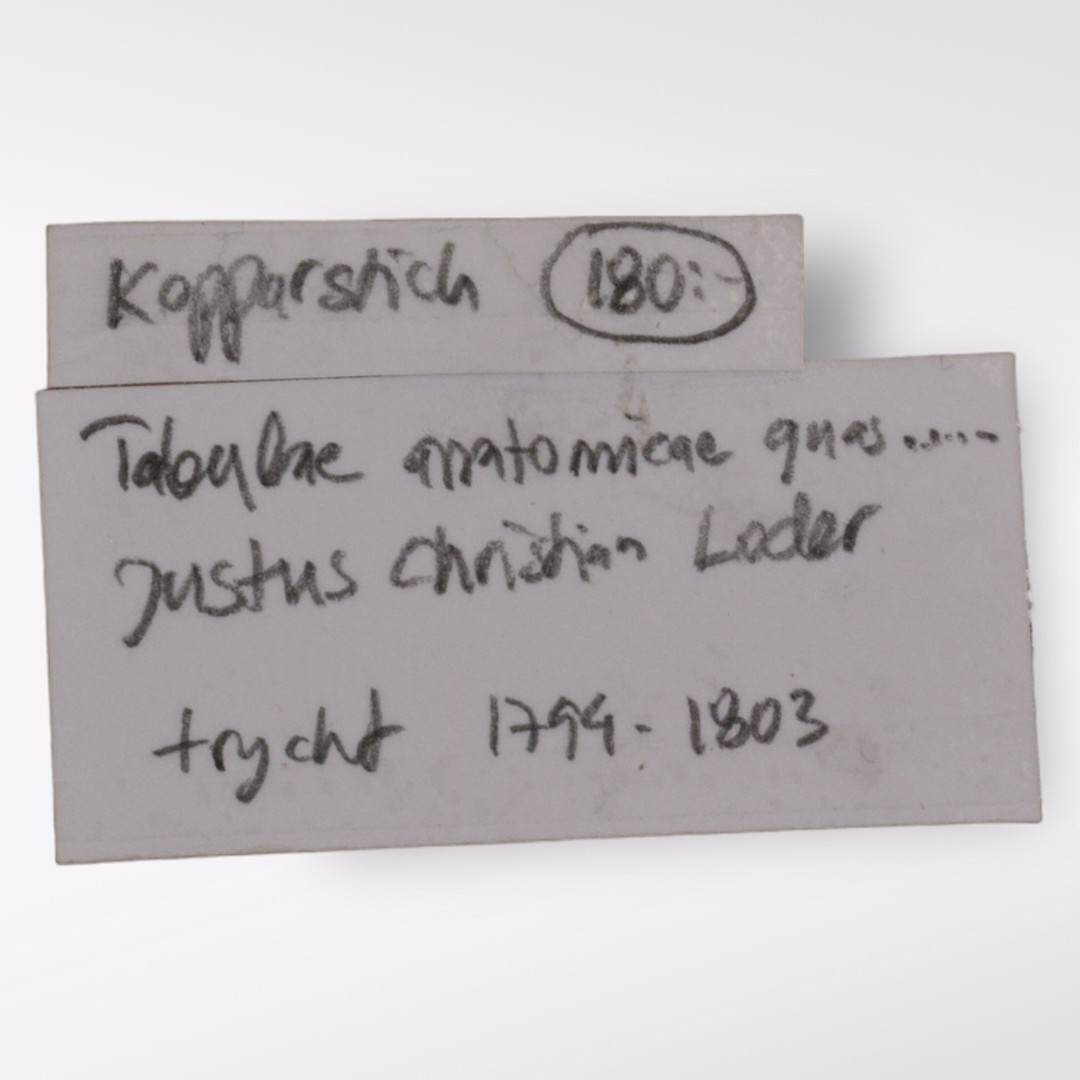 Kopparstich 180:-
Tabulae anatomicae quas......
Justus Christian Loder
trycht 1794-1803